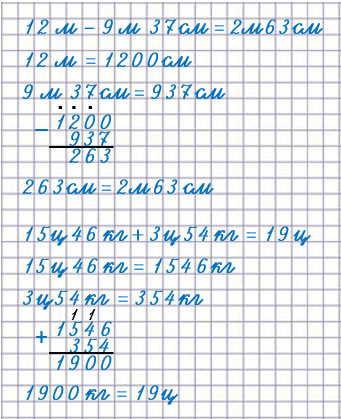 12 м – 9 м 37см = 2м63см
12 м = 1200см
9 м 37см = 937см
. . .
– 1200
937
263
263см = 2м 63 см
15ц 46 кг + 3ц 54 кг = 19 ц
15ц 46 кг = 1546кг
3ц54 кг = 354кг
1 1
+ 1546
354
1900
1900 кг = 19ц